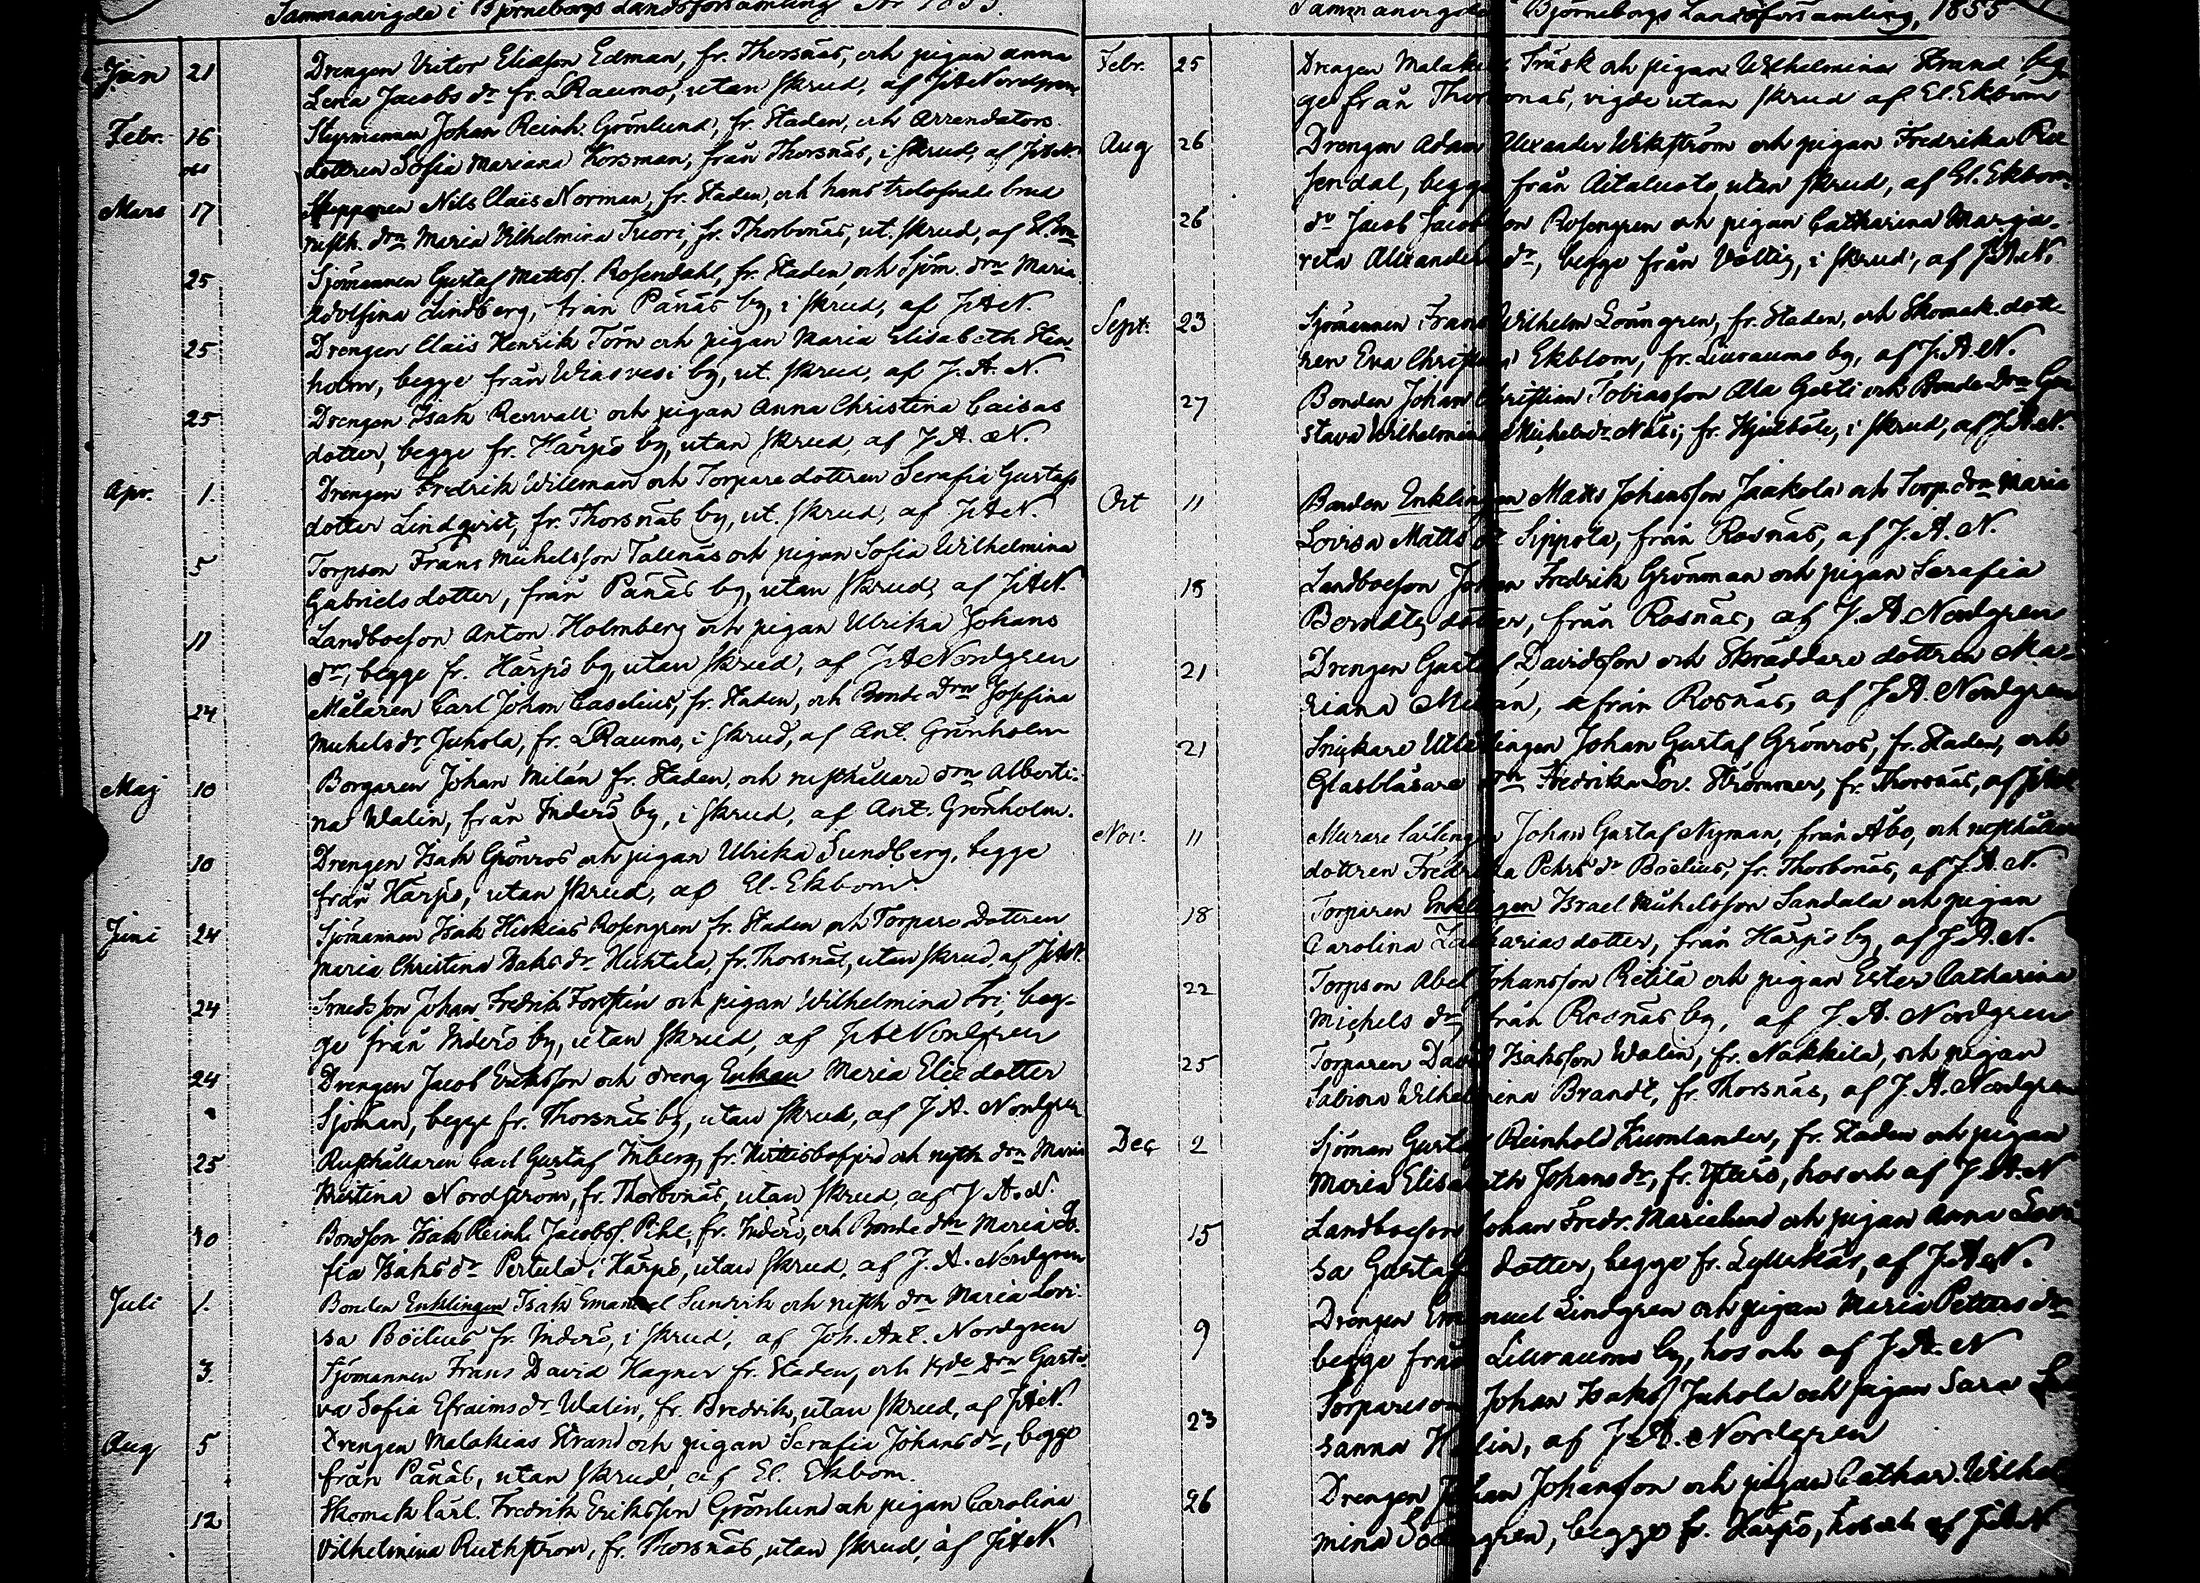 Sammanvigde i Björneborgs Landsförsamling År 1855.
Jan 21 Drengen Victor Eliasson Edman, fr. Thorsnäs, och pigan Anna
Lena Jacobs dr fr. LRaumo, utan skrud, af JANordgren
Febr. 16 Styrmannen Johan Reinh. Grönlund, fr. Staden, och Arrendators
dottren Sofia Mariana Korsman, från Thorsnäs, i skrud, af JAN.
Mars 17 Skepparen Nils Claës Norman, fr. Staden, och hans trolofvade brud
rusth. drn Maria Wilhelmina Tuori, fr. Thorbonäs, ut. skrud, af El.
25 Sjömannen Gustaf Mattss. Rosendahl, fr. Staden, och Sjöm. drn Maria
Adolfina Lindberg, från Pänäs by, i skrud, af JAN.
25 Drengen Claës Henrik Törn och pigan Maria Elisabeth Sten-
holm, begge från Wiasvesi by, ut. skrud, af J. A. N.
25 Drengen Isak Renvall och pigan Anna Christina Caisas
dotter, begge fr. Harjo by, utan skrud, af J. A. N.
Apr. 1. Drengen Fredrik Wileman och Torpare dottren Serafia Gustafs
dotter Lindqvist, fr. Thorsnäs by, ut. skrud, af JAN.
5 Torpson Frans Michelsson Tallnäs och pigan Sofia Wilhelmina
Gabriels dotter, från Pänäs by, utan skrud, af JAN.
11 Landboeson Anton Holmberg och pigan Ulrika Johans
dr, begge fr. Harjo by, utan skrud, af JANordgren
24 Målaren Carl Johan Caselius, fr. Staden, och Bonde drn Josefina
Michels dr Juhola, fr. LRaumo, i skrud, af Ant. Grönholm
Maj 10 Borgaren Johan Milán fr. Staden, och rusthållare drn Alberti-
na Walin, från Inderö by, i skrud, af Ant. Grönholm.
10 Drengen Isak Grönros och pigan Ulrika Sundberg, begge
från Harjo, utan skrud, af El. Ekbom.
Juni 24 Sjömannen Isak Hiskias Rosengren fr. Staden och Torpare Dottren
Maria Christina Isaks dr Huhtala, fr. Thorsnäs, utan skrud, af JAN.
24 Smedsson Johan Fredrik Forstén och pigan Wilhelmina Fri, beg-
ge från Inderö by, utan skrud, af JANordgren
24 Drengen Jacob Eriksson och dreng Enkan Maria Elie dotter
Sjöman, begge fr. Thorsnäs by, utan skrud, af J. A. Nordgren
25 Rusthållaren Carl Gustaf Inberg, fr. och rusth. drn Maria
Kristina Nordström, fr. Thorbonäs, utan skrud, af J. A. N.
30 Bondson Isak Reinh. Jacobss. Pihl, fr. Inderö, och Bonde drn Maria So-
fia Isaks dr Pertula, i Harjo, utan skrud, af J. A. Nordgren
Juli 1. Bonden Enklingen Isak Emanuel Sundvik och rusth. drn Maria Lovi-
sa Böëlius fr. Inderö, i skrud, af Joh. Ant. Nordgren
3. Sjömannen Frans David Hagner fr. Staden, och Bde Drn Gusta-
va Sofia Efraims dr Walin, fr. Bredvik, utan skrud, af JAN.
Aug 5 Drengen Malakias Strand och pigan Serafia Johans dr, begge
från Pänäs, utan skrud, af El. Ekbom.
12 Skomak lärl. Fredrik Eriksson Grönlund och pigan Carolina
Vilhelmina Ruthström, fr. Thorsnäs, utan skrud, af JAN
Sammanvigde i Björneborgs Landsförsamling, 1855
Febr. 25 Drengen Malakias Träsk och pigan Wilhelmina Strand beg-
ge från Thorbonäs, vigde utan skrud af El. Ekbom
Aug 26 Drengen Adam Alexander Wikström och pigan Fredrika Ro-
sendal, begge från Aitaluoto, utan skrud, af El. Ekbom.
26 do Jacob Jacobsson Rosengren och pigan Catharina Marga-
reta Alexanders dr, begge från Vältig, i skrud, af J. A. N.
Sept. 23 Sjömannen Frans Wilhelm Löüngren, fr. Staden, och Skomak. dott-
ren Eva Christina Ekblom, fr. Liuraumo by, af J. A. N.
27 Bonden Johan Christian Tobiasson Ala Gasti och Bonde Drn Gu-
stava Wilhelmina Michels dr Näsi, fr. Hjulböle, i skrud, af J. A. N.
Oct 11 Bonden Enklingen Matts Johansson Jaakola och Torp. drn Maria
Lovisa Matts dr Sippola, från Rosnäs, af J. A. N.
18 Landboeson Johan Fredrik Grönman och pigan Serafia
Berndts dotter, från Rosnäs, af J. A. Nordgren
21 Drengen Gustaf Davidsson och Skräddare dottren Ma-
riana Milán, från Rosnäs, af J. A. Nordgren
21 Snickare Utlärlingen Johan Gustaf Grönros, fr. Staden, och
Glasblåsare drn Fredrika Lov. Strömmer, fr. Thorsnäs, af JAN
Nov. 11 Murare lärlingen Johan Gustaf Nyman, från Åbo, och rusthållare
dottren Fredrika Pehrs dr Böëlius, fr. Thorbonäs, af J. A. N.
18 Torparen Enklingen Israel Michelsson Sandula och pigan
Carolina Zacharias dotter, från Harjo by, af J. A. N.
22 Torpson Abel Johansson Retila och pigan Ester Catharina
Michels dr, från Rosnäs by, af J. A. Nordgren
25 Torparen David Isaksson Walin, fr. Nakkila, och pigan
Sabina Wilhelmina Brandt, fr. Thorsnäs, af J. A. Nordgren
Dec 2 Sjöman Gustaf Reinhold Kumlander, fr. Staden och pigan
Maria Elisabeth Johans dr, fr. Ytterö, hos och af J. A. N
15 Landboeson Johan Fredr. Marielund och pigan Anna Lovi-
sa Gustafs dotter, begge fr. Lyttskär, af J. A. N.
9 Drengen Emanuel Lindgren och pigan Maria Petters dr
begge från Liuraumo by, hos och af J. A. N
23 Torpareson Johan Isakss Juhola och pigan Sara Su-
sanna Helin, af J. A. Nordgren
26 Drengen Johan Johansson och pigan Cathar. Wilhel-
mina Södergren, begge fr. Harjo, hos och af JAN